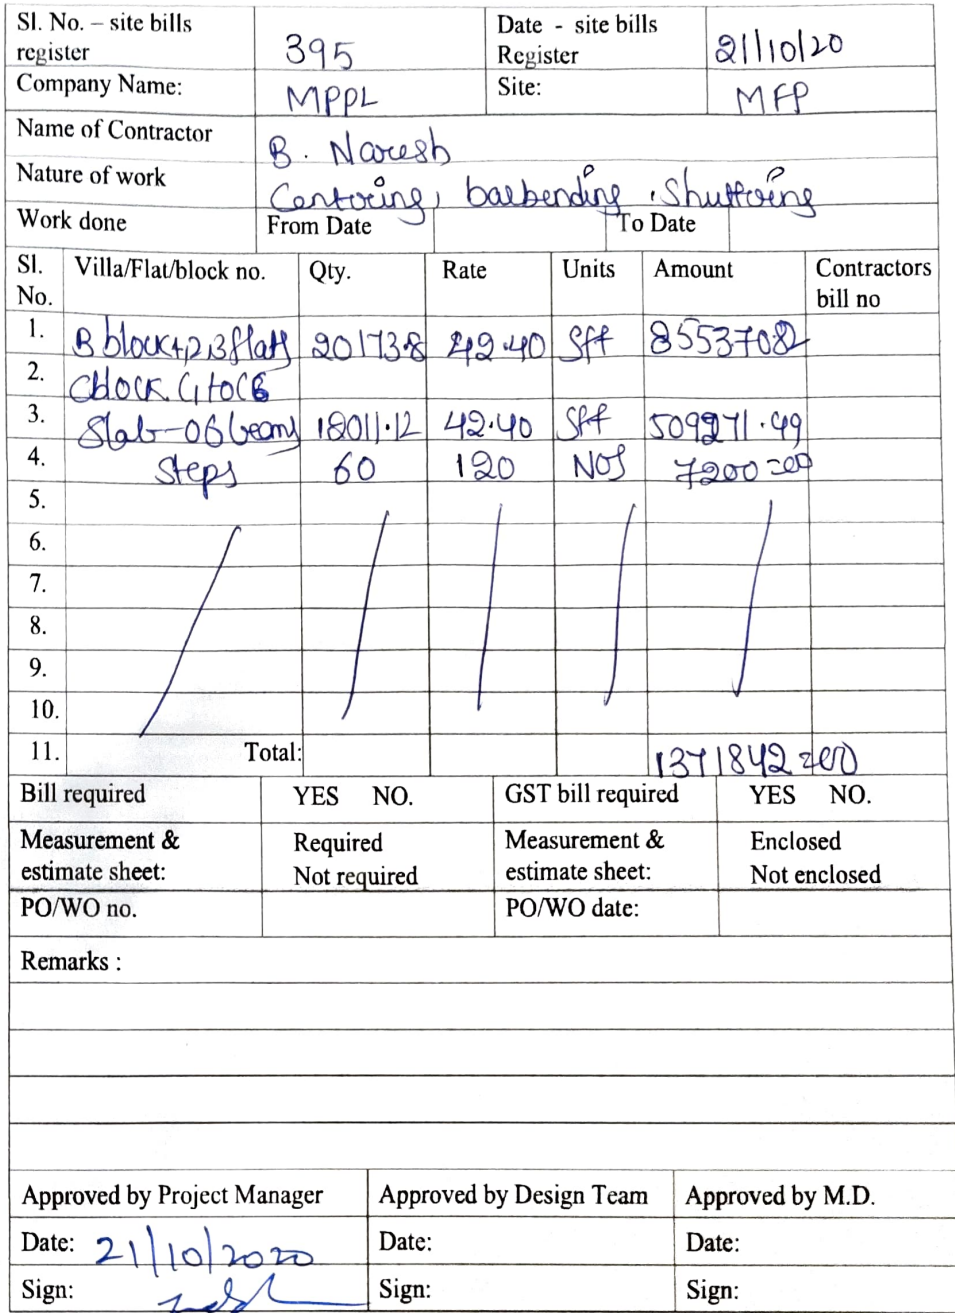 Sl. No. – site bills register 395 Date - site bills Register 21/10/20
Company Name: MPPL Site: MFP
Name of Contractor B. Naresh
Nature of work Centoring, barbending, Shuttoring
Work done From Date To Date
Sl. No. Villa/Flat/block no. Qty. Rate Units Amount Contractors bill no
1. B block 1,2,3 flats 20173.8 42.40 Sft 855370.82
2. C block C1 to C6
3. Slab-06 beams 12011.12 42.40 Sft 509271.49
4. Steps 60 120 NOS 7200=00
5.
6.
7.
8.
9.
10.
11. Total: 1371842=00
Bill required YES NO. GST bill required YES NO.
Measurement & estimate sheet: Required Not required Measurement & estimate sheet: Enclosed Not enclosed
PO/WO no. PO/WO date:
Remarks :
Approved by Project Manager Approved by Design Team Approved by M.D.
Date: 21/10/2020 Date: Date:
Sign: Sign: Sign: